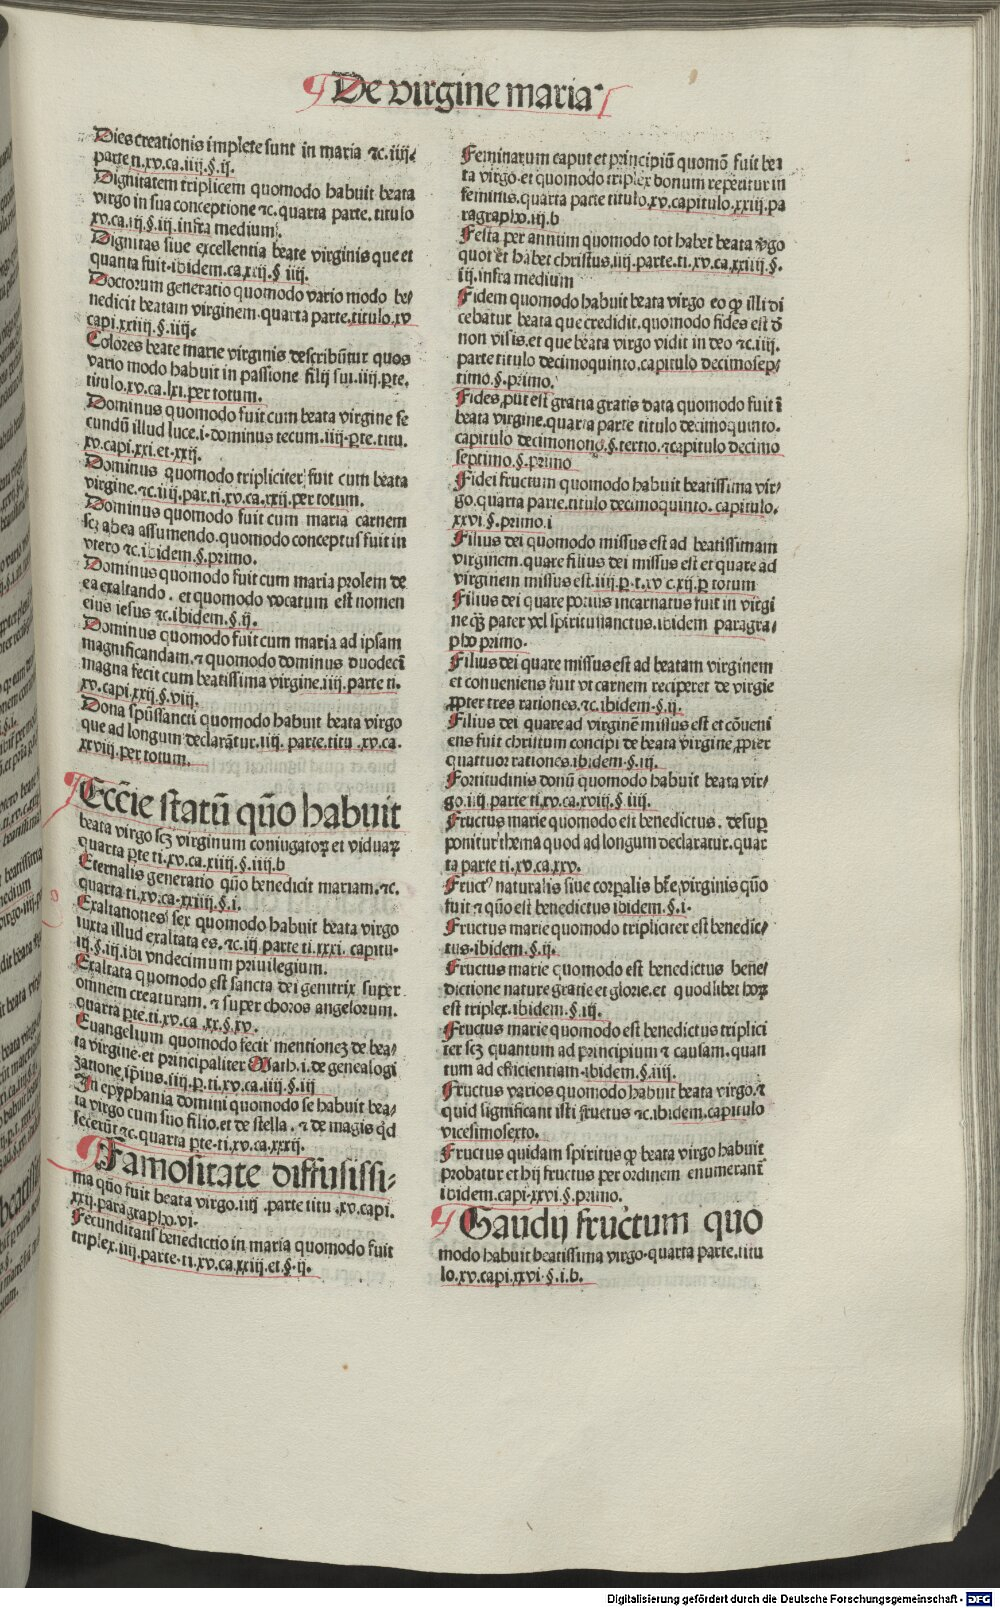 De virgine maria
Dies creationis implete sunt in maria ⁊c. iiij.
parte ti. xv. ca. iiij. §. ij.
Dignitatem triplicem quomodo habuit beata
virgo in sua conceptione ⁊c. quarta parte. titulo
xv. ca. iij. §. iij. infra medium.
Dignitas siue excellentia beate virginis que et
quanta fuit. ibidem. ca. xxij. § iiij.
Doctorum generatio quomodo vario modo be/
nedicit beatam virginem. quarta parte. titulo. xv
capi. xxiiij. §. iiij.
Colores beate marie virginis describūtur quos
vario modo habuit in passione filij sui. iiij. ꝑte.
titulo. xv. ca. lxi. per totum.
Dominus quomodo fuit cum beata virgine se
cundū illud luce. i. dominus tecum. iiij. ꝑte. titu.
xv. capi. xxi. et. xxij.
Dominus quomodo tripliciter fuit cum beata
virgine. ⁊c. iiij. par. ti. xv. ca. xxij. per totum.
Dominus quomodo fuit cum maria carnem
scꝫ ab ea assumendo. quomodo conceptus fuit in
vtero ⁊c. ibidem. §. primo.
Dominus quomodo fuit cum maria prolem de
ea exaltando. et quomodo vocatum est nomen
eius iesus ⁊c. ibidem. §. ij.
Dominus quomodo fuit cum maria ad ipsam
magnificandam. ⁊ quomodo dominus duodecī
magna fecit cum beatissima virgine. iiij. parte ti.
xv. capi. xxij. §. viij.
Dona spūssancti quomodo habuit beata virgo
que ad longum declarātur. iiij. parte. titu. xv. ca.
xxviij. per totum.
Ecclīe statū quō habuit
beata virgo scꝫ virginum coniugatoꝝ et viduaꝝ
quarta ꝑte ti. xv. ca. xiiij. §. iiij. b
Eternalis generatio quō benedicit mariam. ⁊c.
quarta ti. xv. ca. xxiiij. §. i.
Exaltationes sex quomodo habuit beata virgo
iuxta illud exaltata es. ⁊c. iij parte ti. xxxi. capitu.
iij. §. iij. ibi vndecimum priuilegium.
Exaltata quomodo est sancta dei genitrix super
omnem creaturam. ⁊ super choros angelorum.
quarta ꝑte. ti. xv. ca. xx. §. xv.
Euangelium quomodo fecit mentionez de bea/
ta virgine. et principaliter Math. i. de genealogi
zatione. ip̄ius. iiij. p. ti. xv. ca. iiij. §. iij
In epyphania domini quomodo se habuit bea/
ta virgo cum suo filio. et de stella. ⁊ de magis qd
fecerūt ⁊c. quarta ꝑte. ti. xv. ca. xxxij.
Famositate diffusissi-
ma quō fuit beata virgo. iiij. parte titu. xv. capi.
xxij. paragrapho. vi.
Fecunditatis benedictio in maria quomodo fuit
triplex. iiij. parte. ti. xv. ca. xxiij. et. §. ij.
Feminarum caput et principiū quomō fuit bea
ta virgo. et quomodo triplex donum repetitur in
feminis. quarta parte titulo. xv. capitulo. xxiij. pa
ragrapho. iij. b
Festa per annum quomodo tot habet beata v̄go
quot et habet christus. iiij. parte. ti. xv. ca. xxiiij. §.
iij. infra medium
Fidem quomodo habuit beata virgo eo ꝙ illi di
cebatur beata que credidit. quomodo fides est d̄
non visis. et que beata virgo vidit in deo ⁊c. iiij.
parte titulo decimoquinto. capitulo decimosep/
timo. §. primo.
Fides, put est gratia gratis data quomodo fuit ī
beata virgine. quarta parte titulo decimoquinto.
capitulo decimonono. §. tertio. ⁊ capitulo decimo
septimo. §. primo
Fidei fructum quomodo habuit beatissima vir/
go. quarta parte. titulo decimoquinto. capitulo.
xxvi. §. primo. i
Filius dei quomodo missus est ad beatissimam
virginem. quare filius dei missus est et quare ad
virginem missus est. iiij. p. t. xv c. xij. ꝑ totum
Filius dei quare potius incarnatus fuit in virgi
ne qꝫ pater vel spiritussanctus. ibidem paragra/
pho primo.
Filius dei quare missus est ad beatam virginem
et conueniens fuit vt carnem reciperet de virgīe
ꝓpter tres rationes. ⁊c. ibidem. §. ij.
Filius dei quare ad virginē missus est et cōueni
ens fuit christum concipi de beata virgine ꝓpter
quattuor rationes. ibidem. §. iij.
Fortitudinis donū quomodo habuit beata vir/
go. iiij. parte ti. xv. ca. xviij. §. iiij.
Fructus marie quomodo est benedictus. desuꝑ
ponitur thema quod ad longum declaratur. quar
ta parte ti. xv. ca. xxv.
Fruct⁹ naturalis siue corꝑalis bt̄e. virginis quō
fuit ⁊ quō est benedictus ibidem. §. i.
Fructus marie quomodo tripliciter est benedic/
tus. ibidem. §. ij.
Fructus marie quomodo est benedictus bene/
dictione nature gratie et glorie. et quodlibet hoꝝ
est triplex. ibidem. §. iij.
Fructus marie quomodo est benedictus triplici
ter scꝫ quantum ad principium ⁊ causam. quan
tum ad efficientiam. ibidem. §. iiij.
Fructus varios quomodo habuit beata virgo. ⁊
quid significant isti fructus ⁊c. ibidem. capitulo
vicesimosexto.
Fructus quidam spiritus ꝙ beata virgo habuit
probatur et hij fructus per ordinem enumerant̄
ibidem. capi. xxvi. §. primo.
Gaudij fructum quo
modo habuit beatissima virgo. quarta parte. titu
lo. xv. capi. xxvi. §. i. b.
Digitalisierung gefördert durch die Deutsche Forschungsgemeinschaft - DFG